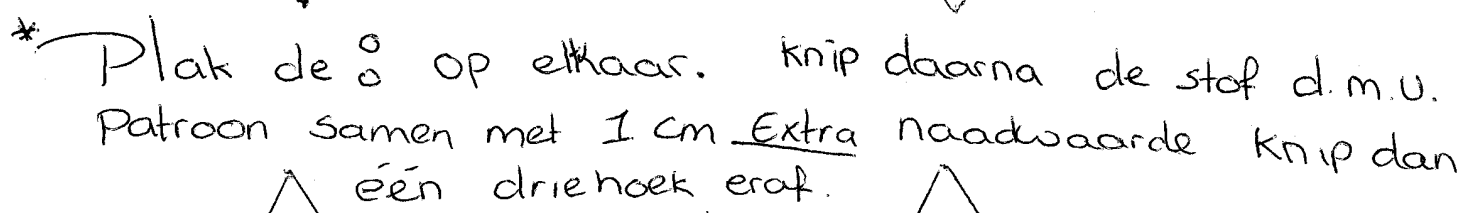 * Plak de 8 op elkaar. knip daarna de stof d.m.v.
Patroon samen met 1 cm Extra naadwaarde knip dan
één driehoek eraf.